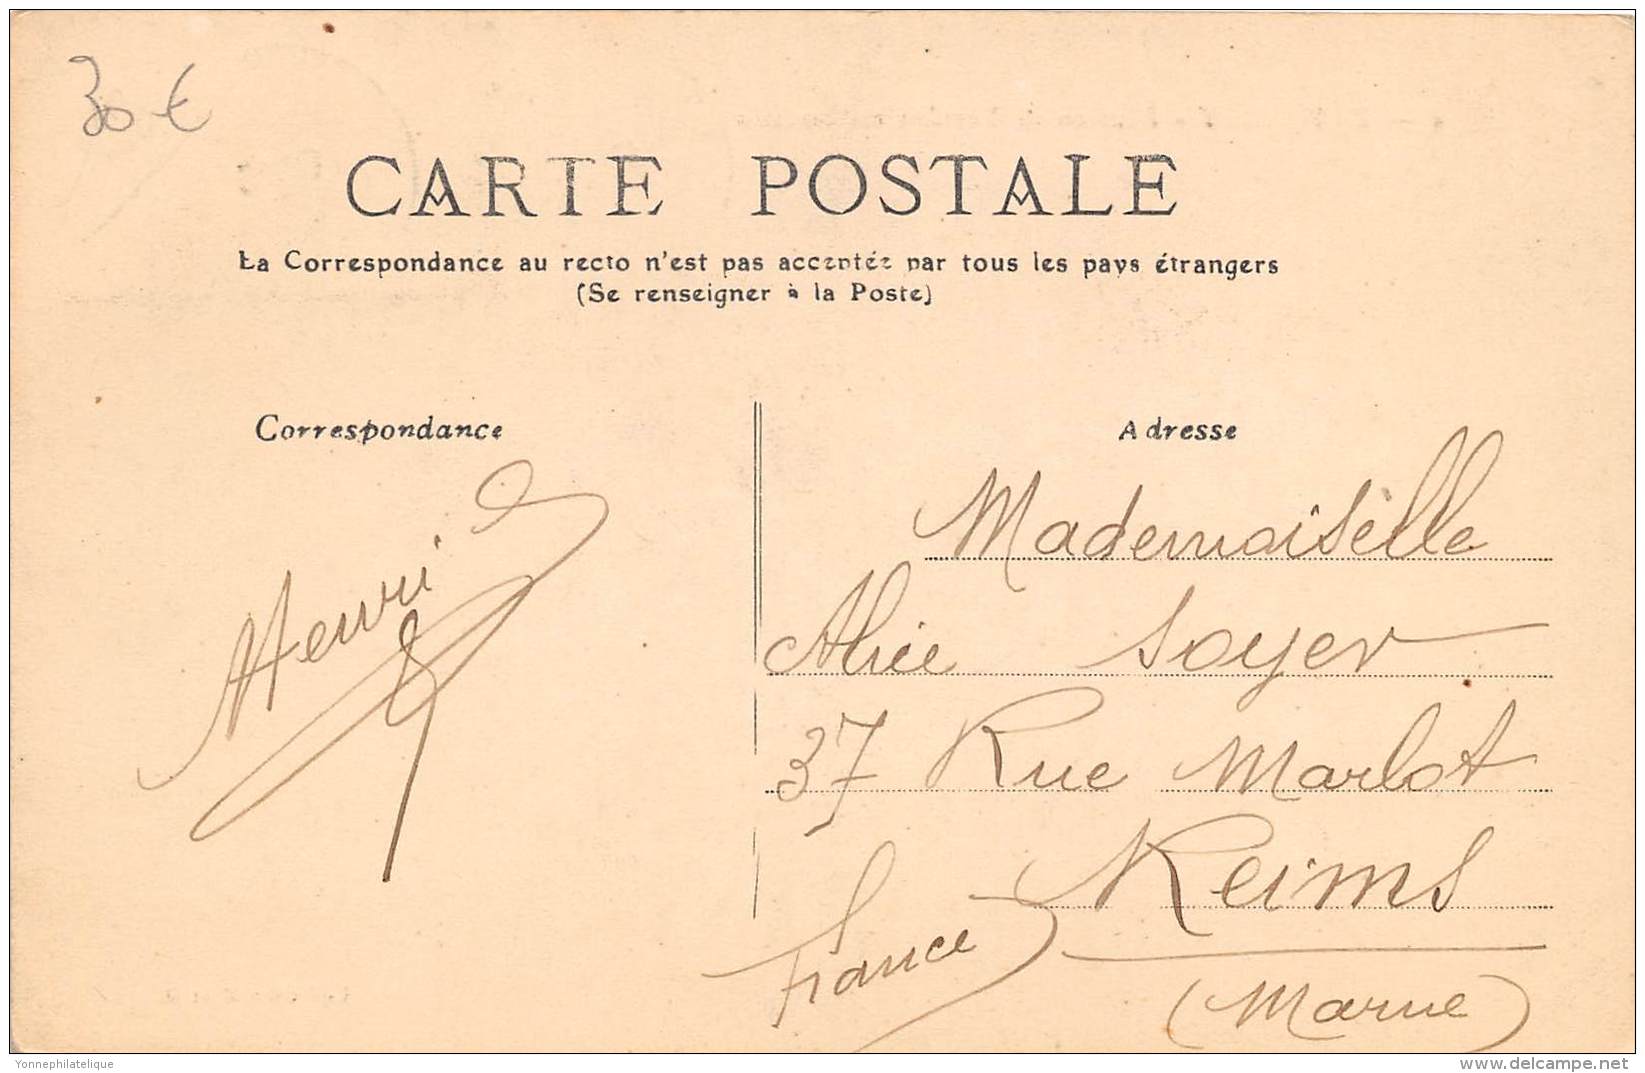 30 €
CARTE POSTALE
La Correspondance au recto n'est pas acceptée par tous les pays étrangers
(Se renseigner à la Poste)
Correspondance
Adresse
Henri
Mademoiselle
Alice Soyer
37 Rue Marlot
Reims
France
(Marne)
Yonnephilatelique
delcampe.net